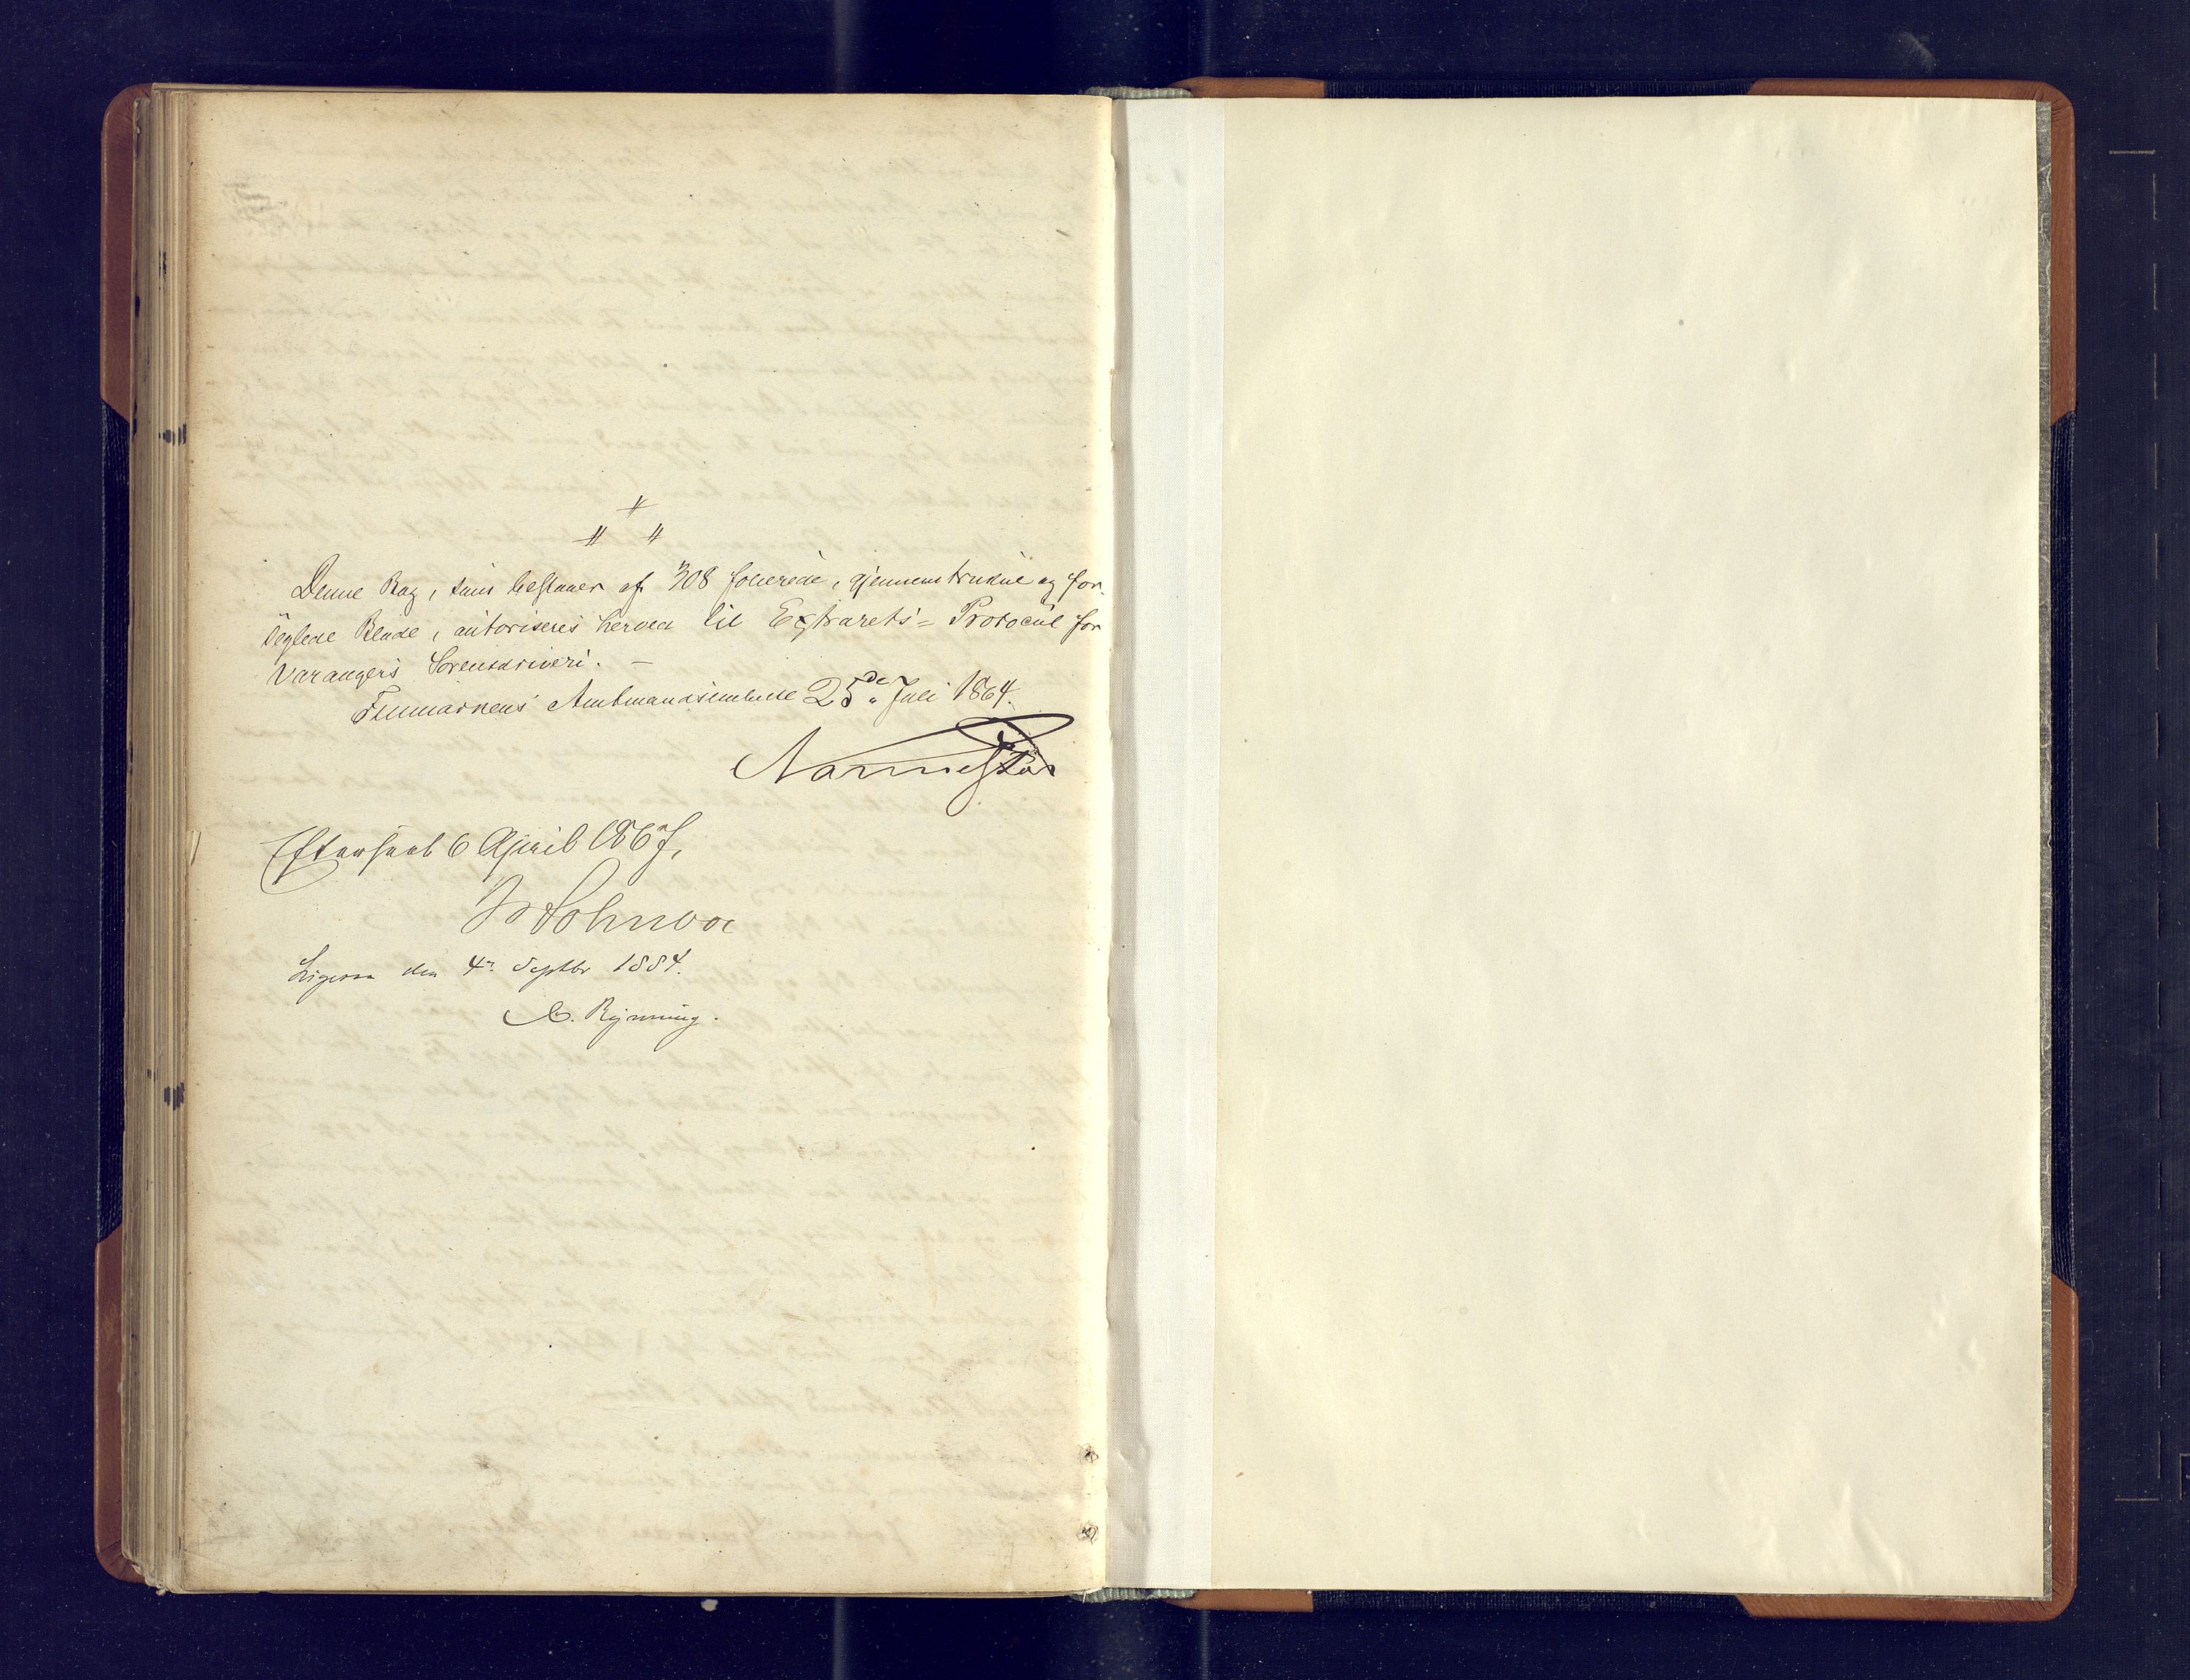 Denne Bog, som bestaaer af 308 folierede, gjennemtrukne og for-
seglede Blade, autoriseres herved til Extrarets=Protocol for
Varangers Sorenskriveri. —
Finmarkens Amtmandsembede 25de Juli 1864.
Efterseet 6 April 1867,
Ligesaa den 4de Septbr 1884.
C. Rynning.